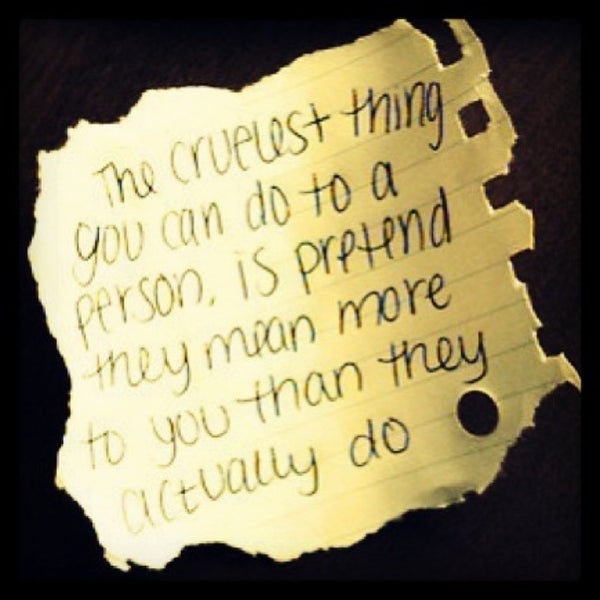 The cruelest thing
you can do to a
person. is pretend
they mean more
to you than they
actually do